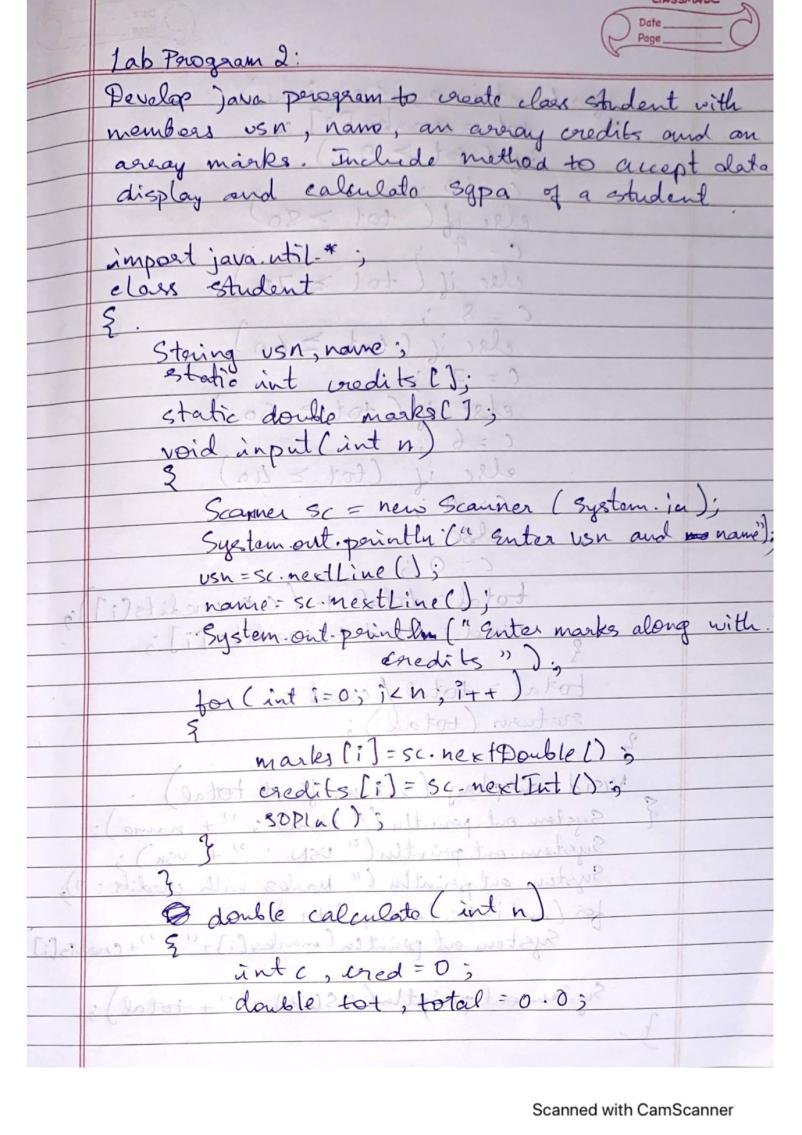 CLASSMATE
Date
Page
Lab Program 2:
Develop java program to create class student with
members usn, name, an array credits and an
array marks. Include method to accept data
display and calculate sgpa of a student
import java.util.*;
class student
{
String usn, name;
static int credits[];
static double marks[];
void input(int n)
{
Scanner sc = new Scanner (System.in);
System.out.println("Enter usn and name");
usn = sc.nextLine();
name = sc.nextLine();
System.out.println("Enter marks along with
credits");
for(int i=0; i<n; i++)
{
marks[i]=sc.nextDouble();
credits[i]=sc.nextInt();
SOPln();
}
}
double calculate(int n)
{
int c, cred = 0;
double tot, total = 0.0;
Scanned with CamScanner